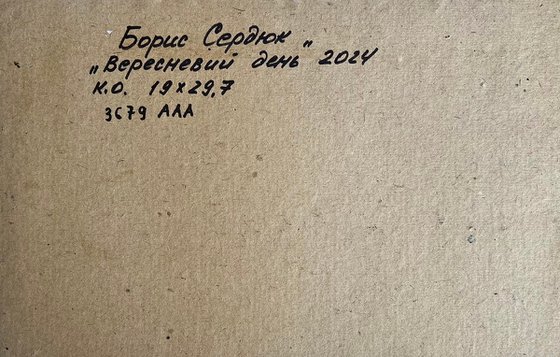 Борис Сердюк
„Вересневий день" 2024
к.о. 19×29,7
3679 ААА